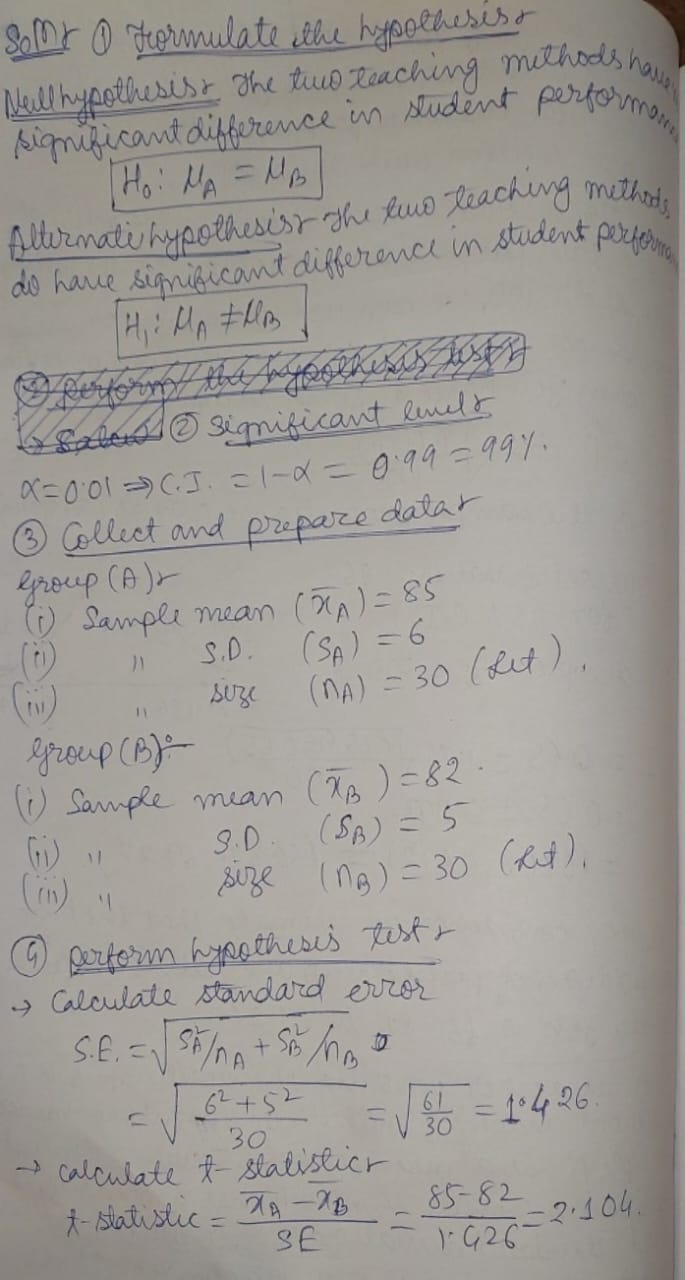 Soln:- ① Formulate the hypothesis:-
Null hypothesis:- The two teaching methods have
significant difference in student performance
H₀: μA = μB
Alternate hypothesis:- The two teaching methods
do have significant difference in student performa
H₁: μA ≠ μB
② perform the hypothesis test:-
→ Calcu ② Significant level:-
α=0.01 ⇒ C.I. = 1-α = 0.99 = 99%.
③ Collect and prepare data:-
Group (A):-
(i) Sample mean (x̄A) = 85
(ii) " S.D. (SA) = 6
(iii) " size (nA) = 30 (let).
Group (B):-
(i) Sample mean (x̄B) = 82.
(ii) " S.D. (SB) = 5
(iii) " size (nB) = 30 (let).
④ perform hypothesis test:-
→ Calculate standard error
S.E. = √(SA²/nA + SB²/nB)
= √((6²+5²)/30) = √(61/30) = 1.426.
→ calculate t-statistic:-
t-statistic = (x̄A - x̄B)/SE = (85-82)/1.426 = 2.104.